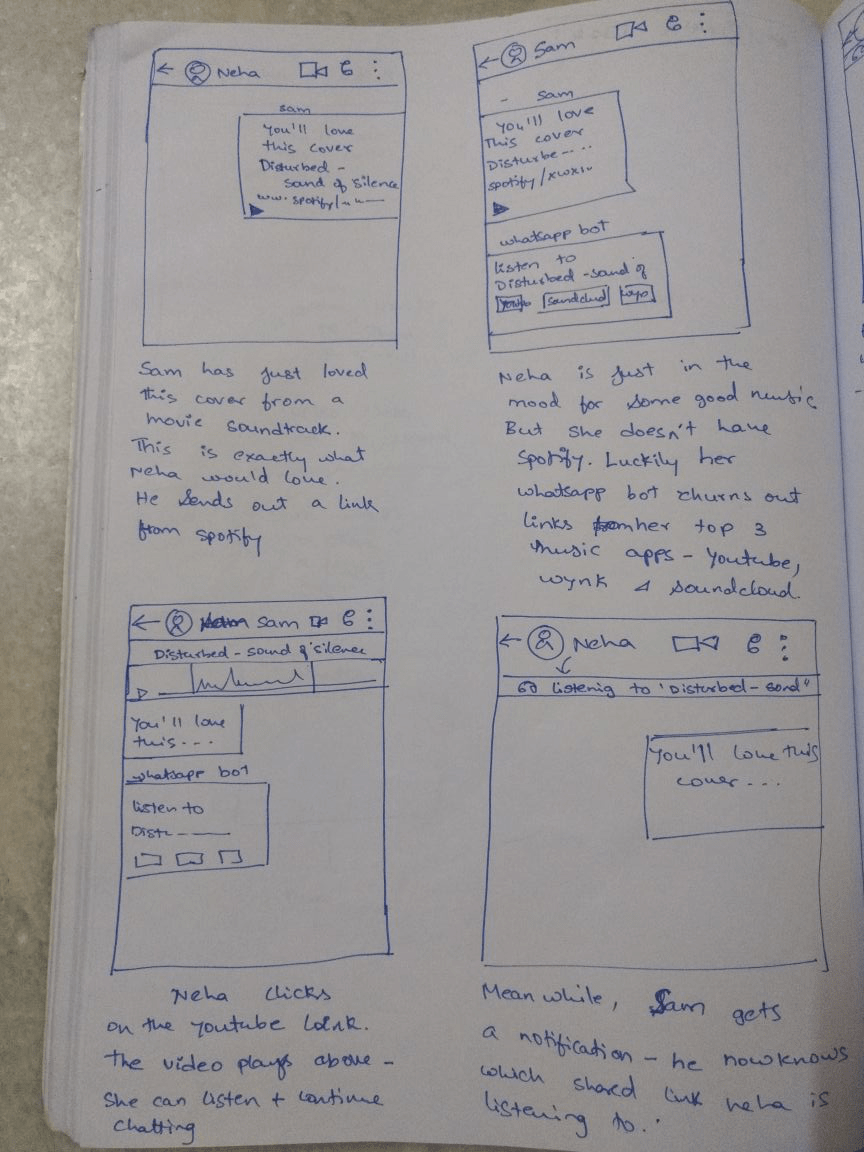 Neha
sam
You'll love
this cover
Disturbed -
sound of silence
ww. spotify/
Sam has just loved
this cover from a
movie soundtrack.
This is exactly what
Neha would love.
He sends out a link
from spotify
Sam
- sam
You'll love
This cover
Disturbe-- ..
spotify/xwxw
whatsapp bot
listen to
Disturbed - sound of
Soundclud
wyn
Neha is just in the
mood for some good music
But she doesn't have
spotify. Luckily her
whatsapp bot churns out
links from her top 3
music apps - Youtube,
wynk & soundcloud.
Sam
Disturbed - sound of silence
You'll love
this...
whatsapp bot
listen to
Distr - ——
Neha clicks
on the youtube link.
The video plays above -
She can listen + continue
chatting
Neha
listenig to 'Disturbed - sond"
You'll love this
cover ...
Mean while, Sam gets
a notification - he now knows
which shared link neha is
listening to..